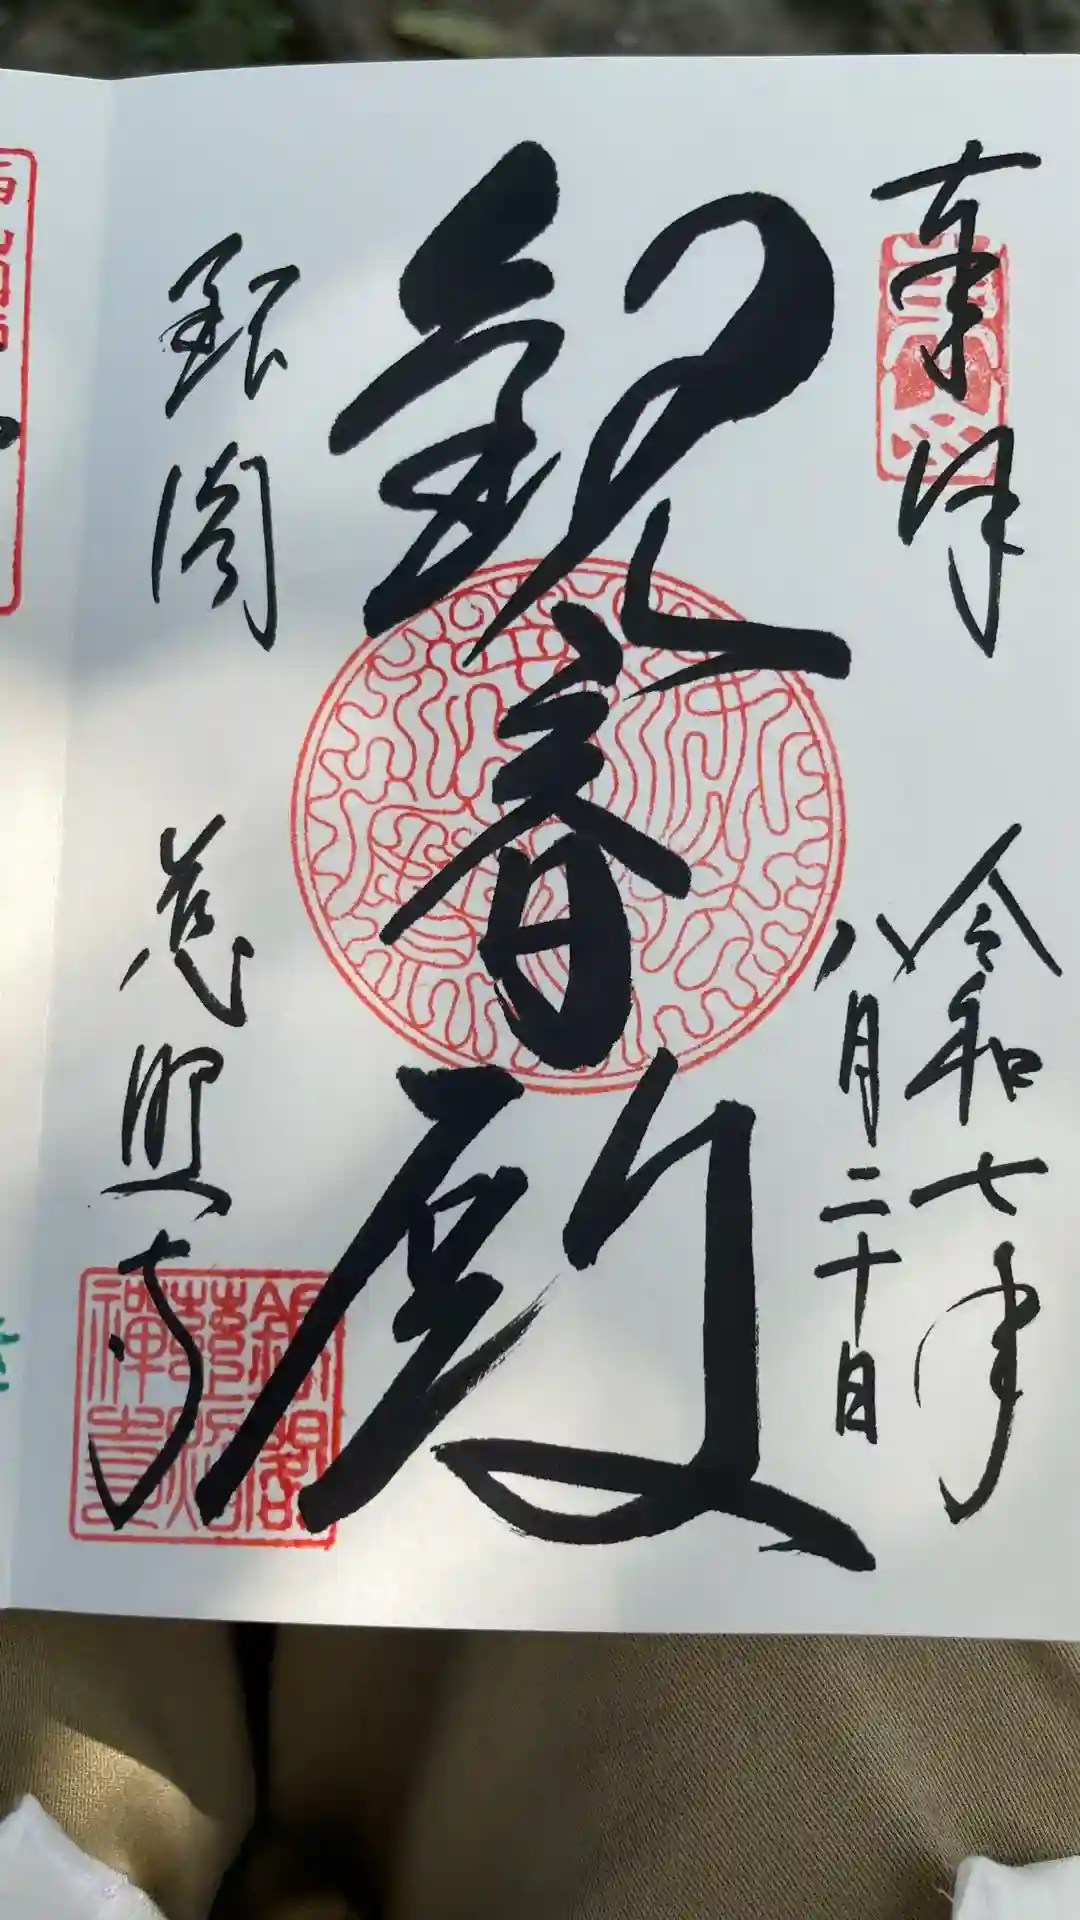 奉拝
令和七年
八月二十日
観音殿
銀閣
慈照寺
銀閣
慈照
禪寺